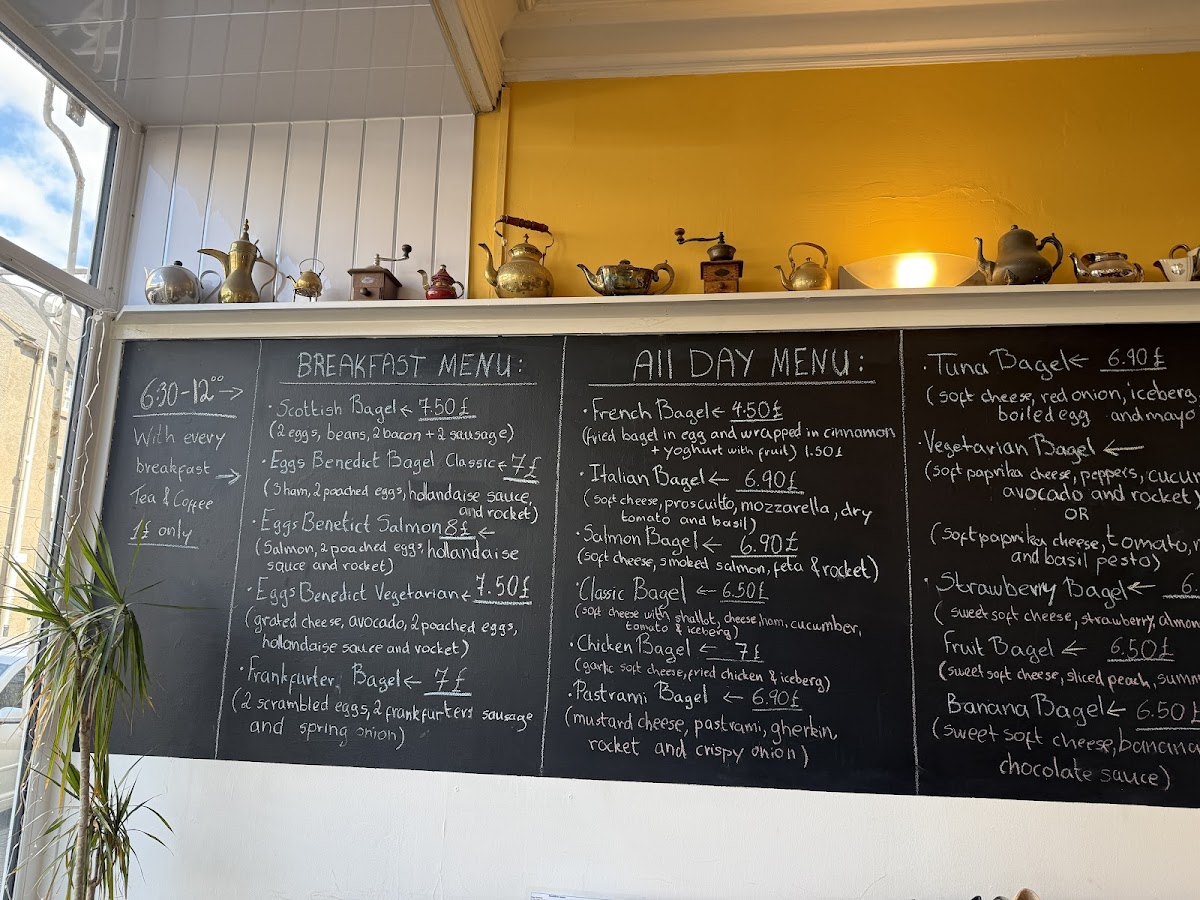 6:30-12⁰⁰→
With every
breakfast →
Tea & Coffee
1£ only
BREAKFAST MENU:
· Scottish Bagel ← 7.50£
(2 eggs, beans, 2 bacon + 2 sausage)
· Eggs Benedict Bagel Classic ← 7£
(3 ham, 2 poached eggs, hollandaise sauce,
and rocket)
· Eggs Benetict Salmon 8£ ←
(Salmon, 2 poached eggs hollandaise
sauce and rocket)
· Eggs Benedict Vegetarian ← 7.50£
(grated cheese, avocado, 2 poached eggs,
hollandaise sauce and rocket)
· Frankfurter Bagel ← 7£
(2 scrambled eggs, 2 frankfurters sausage
and spring onion)
All DAY MENU:
· French Bagel ← 4.50£
(fried bagel in egg and wrapped in cinnamon
+ yoghurt with fruit) 1.50£
· Italian Bagel ← 6.90£
(soft cheese, proscuitto, mozzarella, dry
tomato and basil)
· Salmon Bagel ← 6.90£
(soft cheese, smoked salmon, feta & rocket)
· Classic Bagel ← 6.50£
(soft cheese with shallot, cheese, ham, cucumber,
tomato & iceberg)
· Chicken Bagel ← 7£
(garlic soft cheese, fried chicken & iceberg)
· Pastrami Bagel ← 6.90£
(mustard cheese, pastrami, gherkin,
rocket and crispy onion)
· Tuna Bagel ← 6.90£
(soft cheese, red onion, iceberg
boiled egg and mayo
· Vegetarian Bagel ←
(soft paprika cheese, peppers, cucu
avocado and rocket)
OR
(soft paprika cheese, tomato,
and basil pesto)
· Strawberry Bagel ← 6.
(sweet soft cheese, strawberry, almon
Fruit Bagel ← 6.50£
(sweet soft cheese, sliced peach, summ
Banana Bagel ← 6.50£
(sweet soft cheese, banana
chocolate sauce)